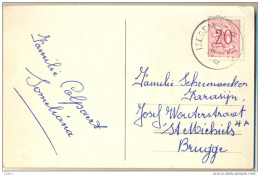 Familie Calpaert
Somelinne
IZEGEM
20
Familie Schumacker
Karasijn
Josef Wouterstraat
St Michiels
Brugge